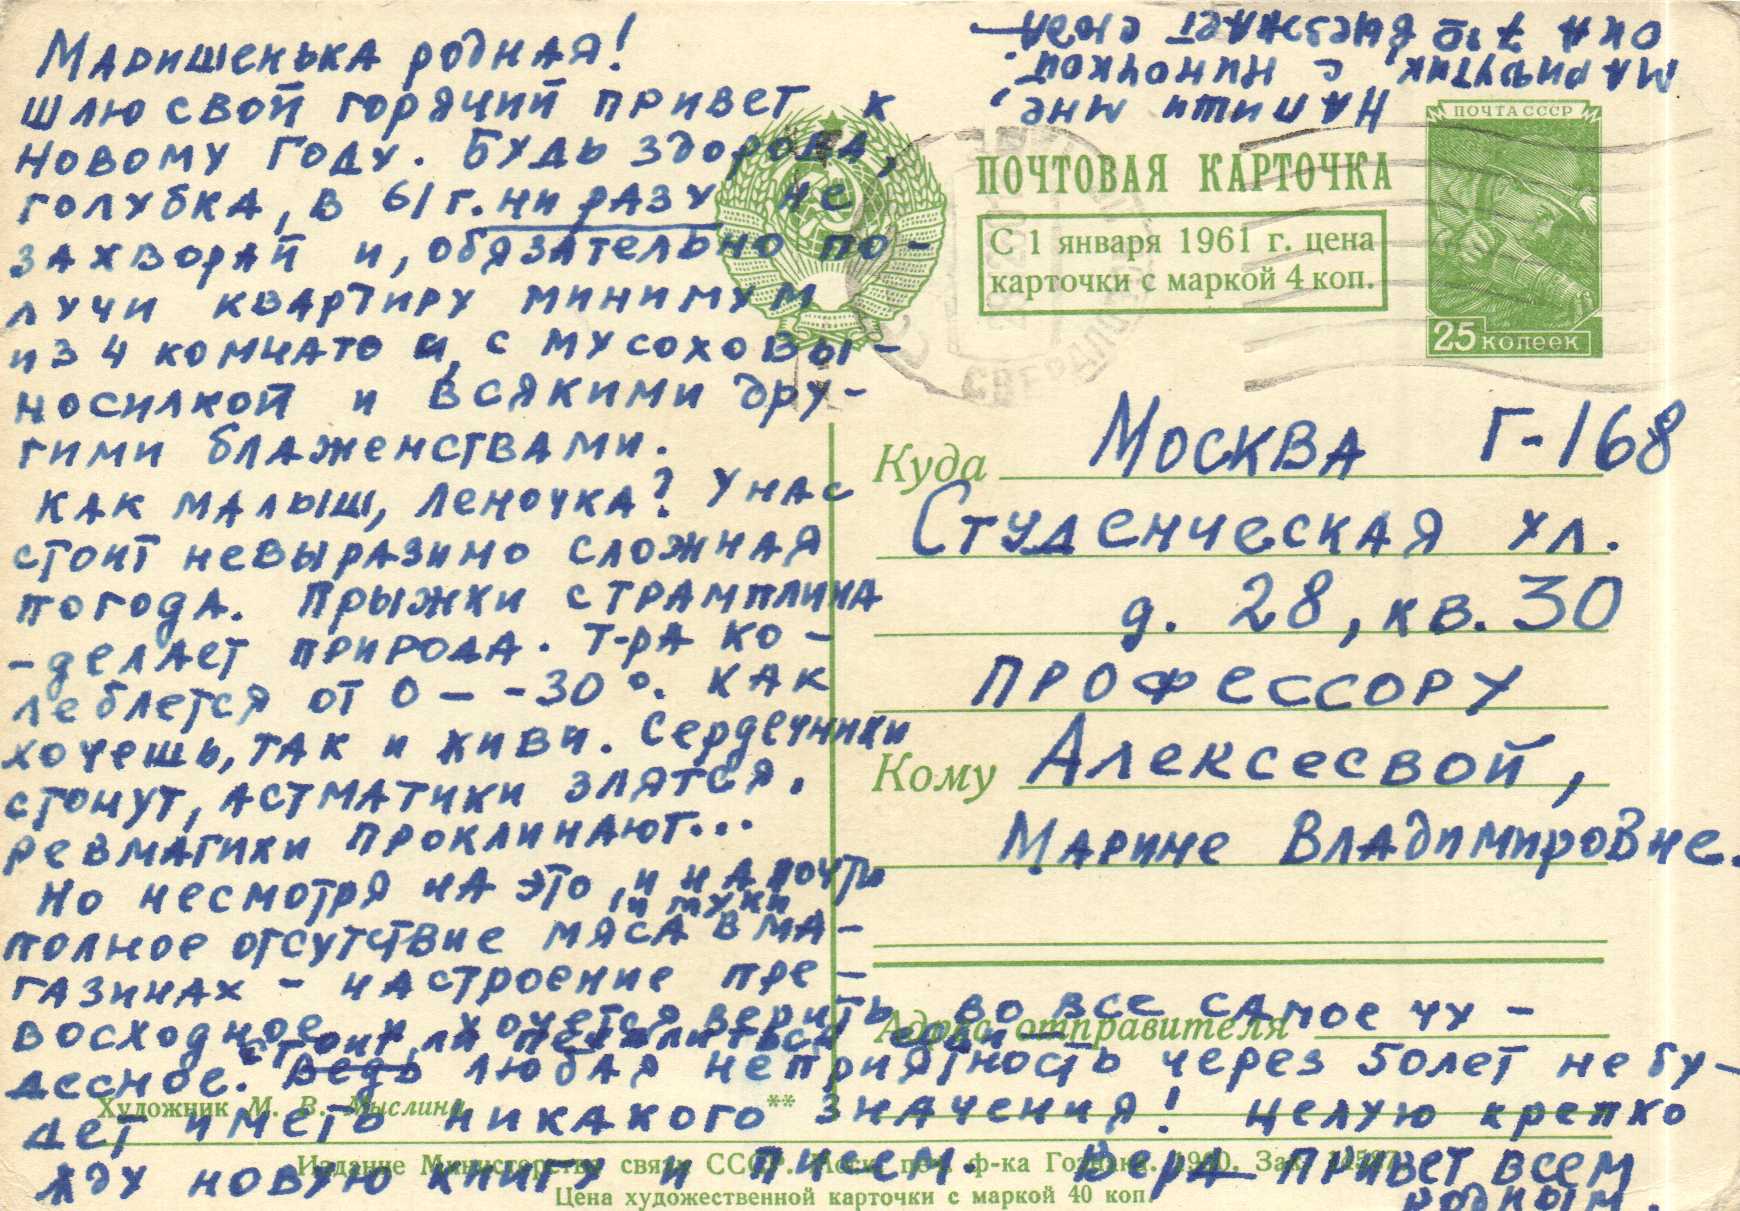 Маришенька родная!
шлю свой горячий привет к
новому году. Будь здорова,
голубка, в 61 г. ни разу не
захворай и, обязательно по-
лучи квартиру минимум
из 4 комнат и, с мусоховы-
носилкой и всякими дру-
гими блаженствами.
Как малыш, Леночка? У нас
стоит невыразимо сложная
погода. Прыжки с трамплина
- делает природа. Т-ра ко-
леблется от 0 — -30°. Как
хочешь, так и живи. Сердечники
стонут, астматики злятся,
ревматики проклинают...
Но несмотря на это, и на почти
полное отсутствие мяса и муки в ма-
газинах - настроение пре-
восходное и хочется верить во все самое чу-
десное. Стоит ли печалиться если
Ведь любая неприятность через 50 лет не бу-
дет иметь никакого значения! Целую крепко
Жду новую книгу и писем. Вера Привет всем
родным.
Напиши мне,
Марируптик, с ниночкой.
она 7 го выезжает
ПОЧТА СССР
25 копеек
ПОЧТОВАЯ КАРТОЧКА
С 1 января 1961 г. цена
карточки с маркой 4 коп.
Куда Москва Г-168
Студенческая ул.
д. 28, кв. 30
профессору
Кому Алексеевой,
Марине Владимировне.
Адрес отправителя
Художник М. В. Мыслина
**
Издание Министерства связи СССР. ф-ка Гознака. 1960. Зак.
Цена художественной карточки с маркой 40 коп.